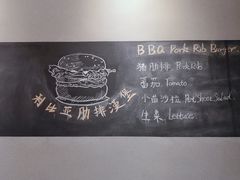 BBQ Pork Rib Burger
猪肋排 Pork Rib
番茄 Tomato
小苗沙拉 Pea Shoot Salad
生菜 Lettuce
利比亚肋排汉堡